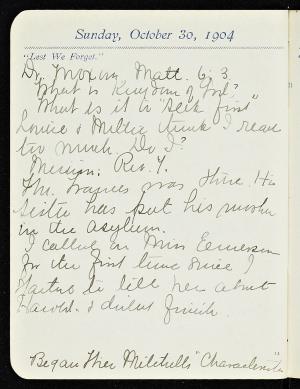 Sunday, October 30, 1904
"Lest We Forget."
Dr. Moxom, Matt. 6:3
What is Kingdom of God?
What is it to "seek first"
Louise & Millie think I read
too much. Do I?
Mission: Rev. 7.
Thr. was there. His
sister has put his mother
in the asylum.
I called on Miss Emerson
for the first time since I
started to tell her about
Harold & didn't finish.
Began Weir Mitchell's "Characteristics